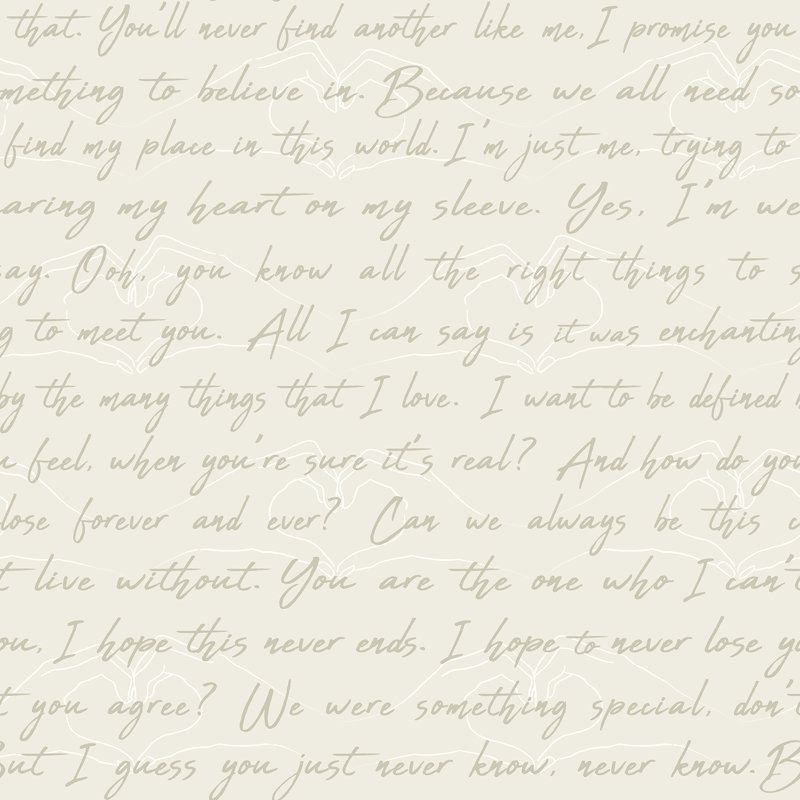 that. You'll never find another like me, I promise you
mething to believe in. Because we all need so
find my place in this world. I'm just me, trying to
aring my heart on my sleeve. Yes, I'm we
say. Ooh, you know all the right things to s
g to meet you. All I can say is it was enchanting
by the many things that I love. I want to be defined
u feel, when you're sure it's real? And how do you
lose forever and ever? Can we always be this
t live without. You are the one who I can't
ou, I hope this never ends. I hope to never lose yo
t you agree? We were something special, don't
But I guess you just never know, never know. B